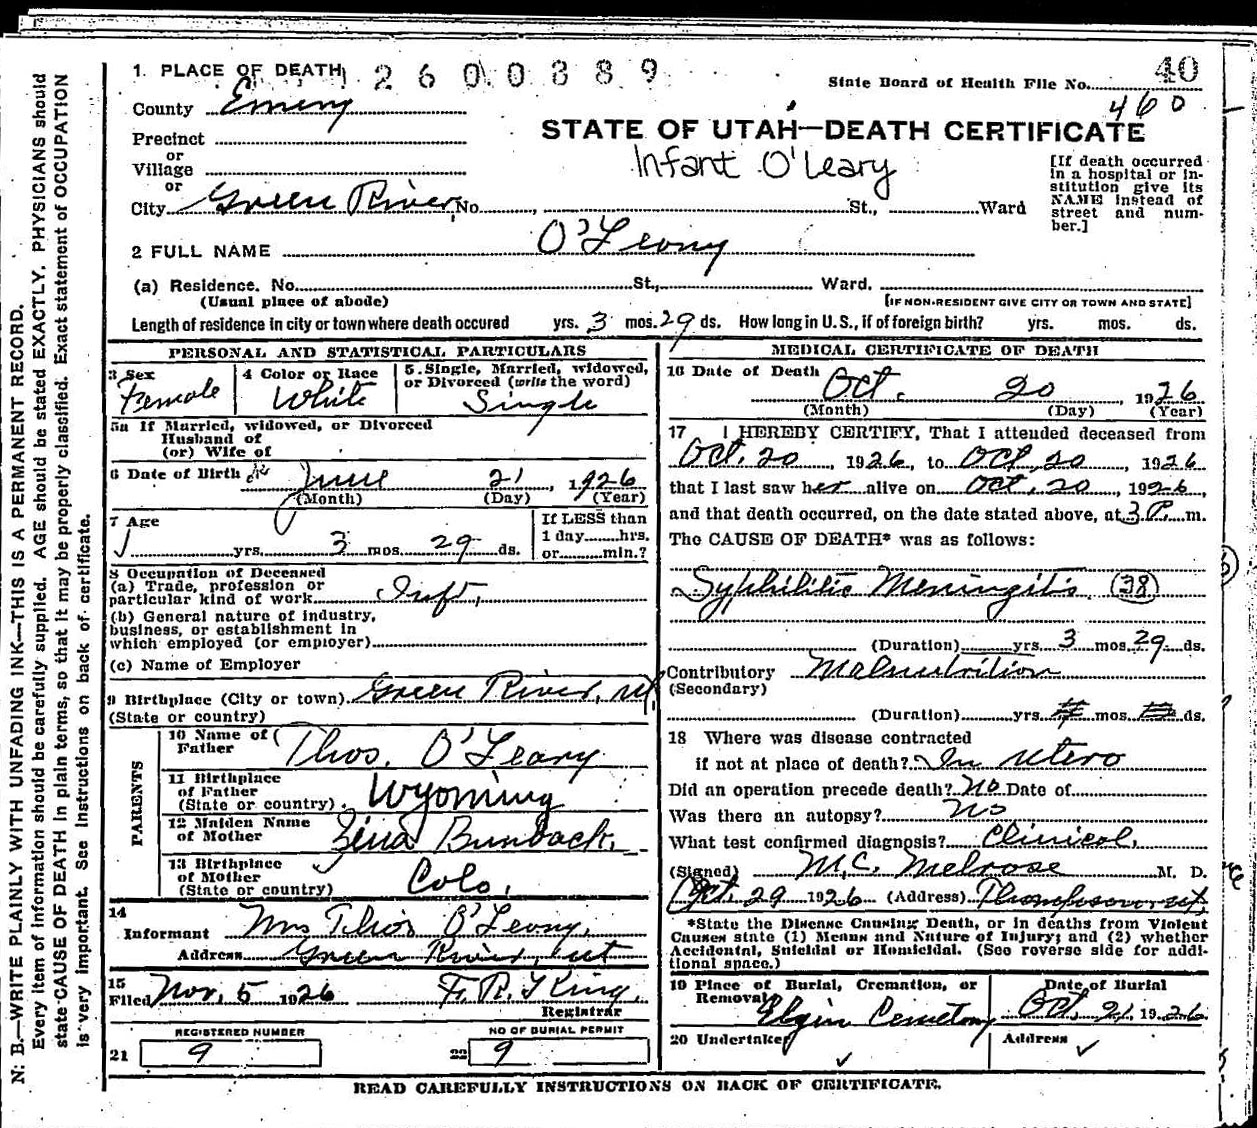 1. PLACE OF DEATH 2600389
State Board of Health File No. 40
460
County Emery
STATE OF UTAH—DEATH CERTIFICATE
Precinct
or
Village
or
Infant O'Leary
[If death occurred
in a hospital or in-
stitution give its
NAME instead of
street and num-
ber.]
City Green River No. , St., Ward
2 FULL NAME O'Leary
(a) Residence. No. St., Ward.
(Usual place of abode)
[IF NON-RESIDENT GIVE CITY OR TOWN AND STATE]
Length of residence in city or town where death occured yrs. 3 mos. 29 ds. How long in U.S., if of foreign birth? yrs. mos. ds.
PERSONAL AND STATISTICAL PARTICULARS
3 Sex
Female
4 Color or Race
White
5. Single, Married, widowed,
or Divorced (write the word)
Single
5a If Married, widowed, or Divorced
Husband of
(or) Wife of
6 Date of Birth June 21, 1926
(Month) (Day) (Year)
7 Age
yrs. 3 mos. 29 ds.
If LESS than
1 day hrs.
or min.?
8 Occupation of Deceased
(a) Trade, profession or
particular kind of work Inft.
(b) General nature of industry,
business, or establishment in
which employed (or employer)
(c) Name of Employer
9 Birthplace (City or town) Green River, Ut.
(State or country)
PARENTS
10 Name of
Father Thos. O'Leary
11 Birthplace
of Father
(State or country). Wyoming
12 Maiden Name
of Mother
13 Birthplace
of Mother
(State or country) Colo.
14
Informant Mrs Thos O'Leary,
Address Green River, ut
15
Filed Nov. 5 1926 F. R. King,
Registrar
REGISTERED NUMBER
21 9
NO OF BURIAL PERMIT
22 9
MEDICAL CERTIFICATE OF DEATH
16 Date of Death
Oct. 20 1926
(Month) (Day) (Year)
17 I HEREBY CERTIFY, That I attended deceased from
Oct. 20, 1926, to Oct. 20, 1926
that I last saw her alive on Oct. 20, 1926,
and that death occurred, on the date stated above, at 3 P. m.
The CAUSE OF DEATH* was as follows:
Syphilitic Meningitis (38)
(Duration) yrs. 3 mos. 29 ds.
Contributory Malnutrition
(Secondary)
(Duration) yrs. mos. ds.
18 Where was disease contracted
if not at place of death? In utero
Did an operation precede death? No Date of
Was there an autopsy? No
What test confirmed diagnosis? Clinical.
(Signed) M.C. Melrose M. D.
Oct. 29 1926 (Address) Thompsons ut,
*State the Disease Causing Death, or in deaths from Violent
Causes state (1) Means and Nature of Injury; and (2) whether
Accidental, Suicidal or Homicidal. (See reverse side for addi-
tional space.)
19 Place of Burial, Cremation, or
Removal
Elgin Cemetery
Date of Burial
Oct. 21, 1926
20 Undertaker
Address
READ CAREFULLY INSTRUCTIONS ON BACK OF CERTIFICATE.
N. B.—WRITE PLAINLY WITH UNFADING INK—THIS IS A PERMANENT RECORD.
Every item of information should be carefully supplied. AGE should be stated EXACTLY. PHYSICIANS should
state CAUSE OF DEATH in plain terms, so that it may be properly classified. Exact statement of OCCUPATION
is very important. See instructions on back of certificate.